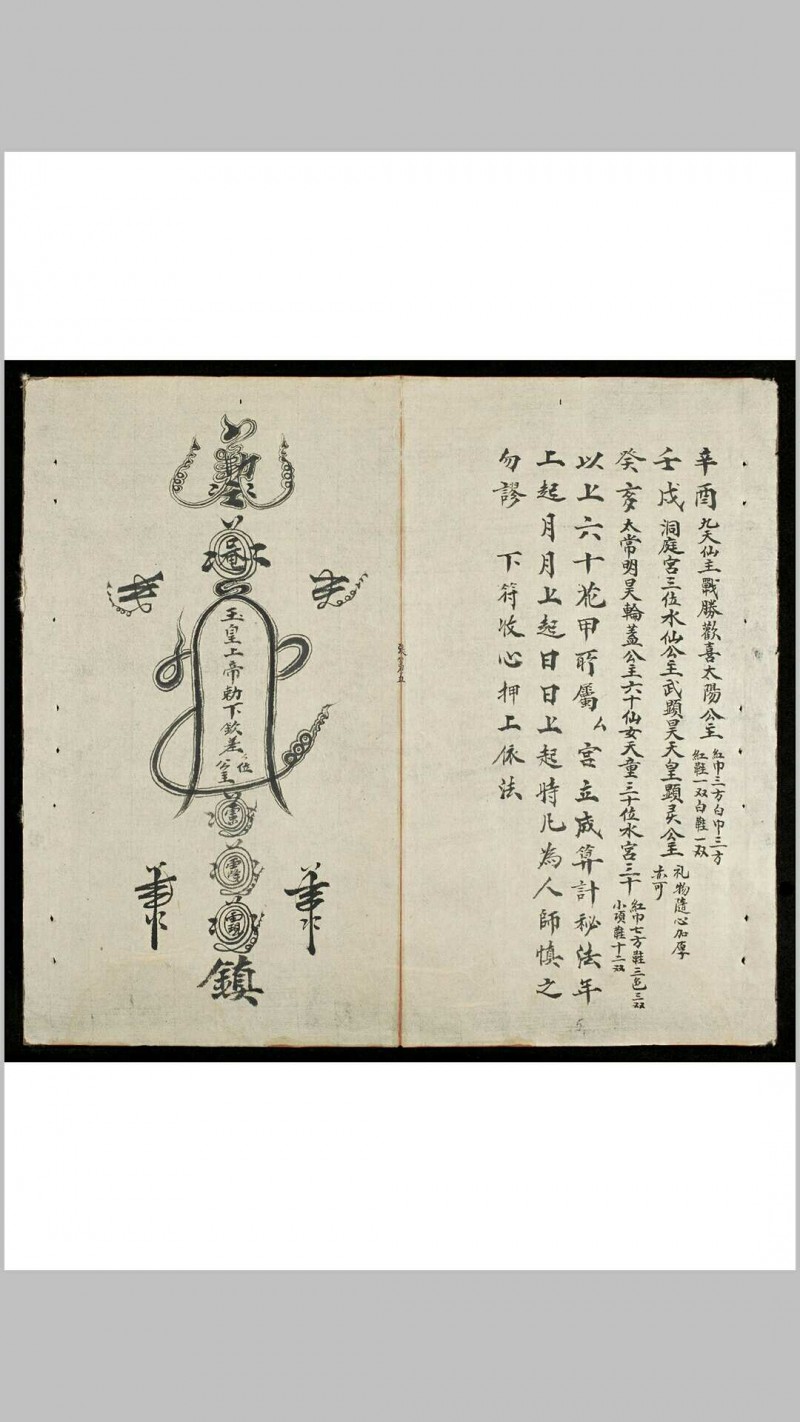 辛酉 九天仙主戰勝歡喜太陽公主 紅巾三方白巾三方
紅鞋一双白鞋一双
壬戌 洞庭宮三位水仙公主武顕昊天皇顕灵公主 礼物隨心加厚
亦可
癸亥 太常明昊輪盖公主六十仙女天童三十位水宮三十 紅巾七方鞋三色三双
小項鞋十二双
以上六十花甲所屬厶宮立成算計秘法年
上起月月上起日日上起時凡為人師慎之
勿謬 下符收心押上依法
玉皇上帝勅下欽差
位
公主
鎮